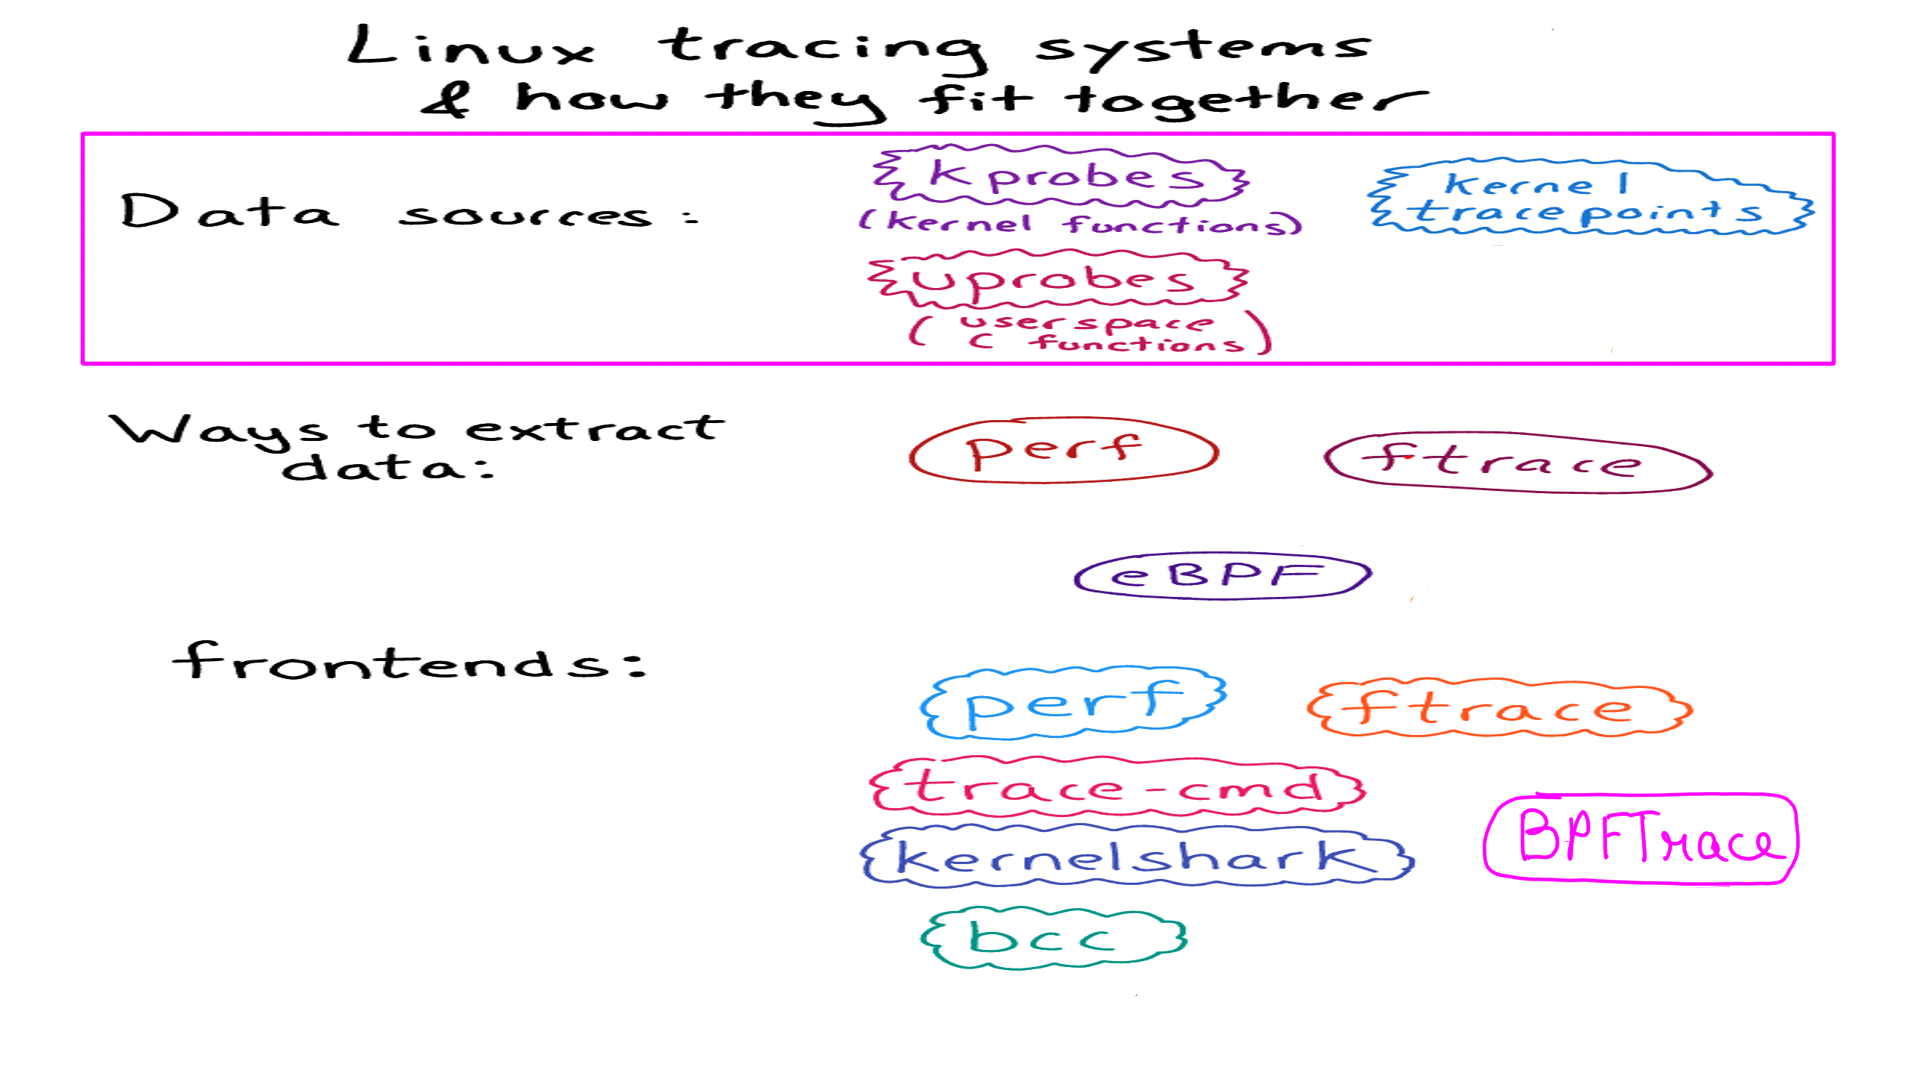 Linux tracing systems
& how they fit together
Data sources:
kprobes
(kernel functions)
kernel
tracepoints
uprobes
(userspace
C functions)
Ways to extract
data:
perf
ftrace
eBPF
frontends:
perf
ftrace
trace-cmd
kernelshark
BPFTrace
bcc